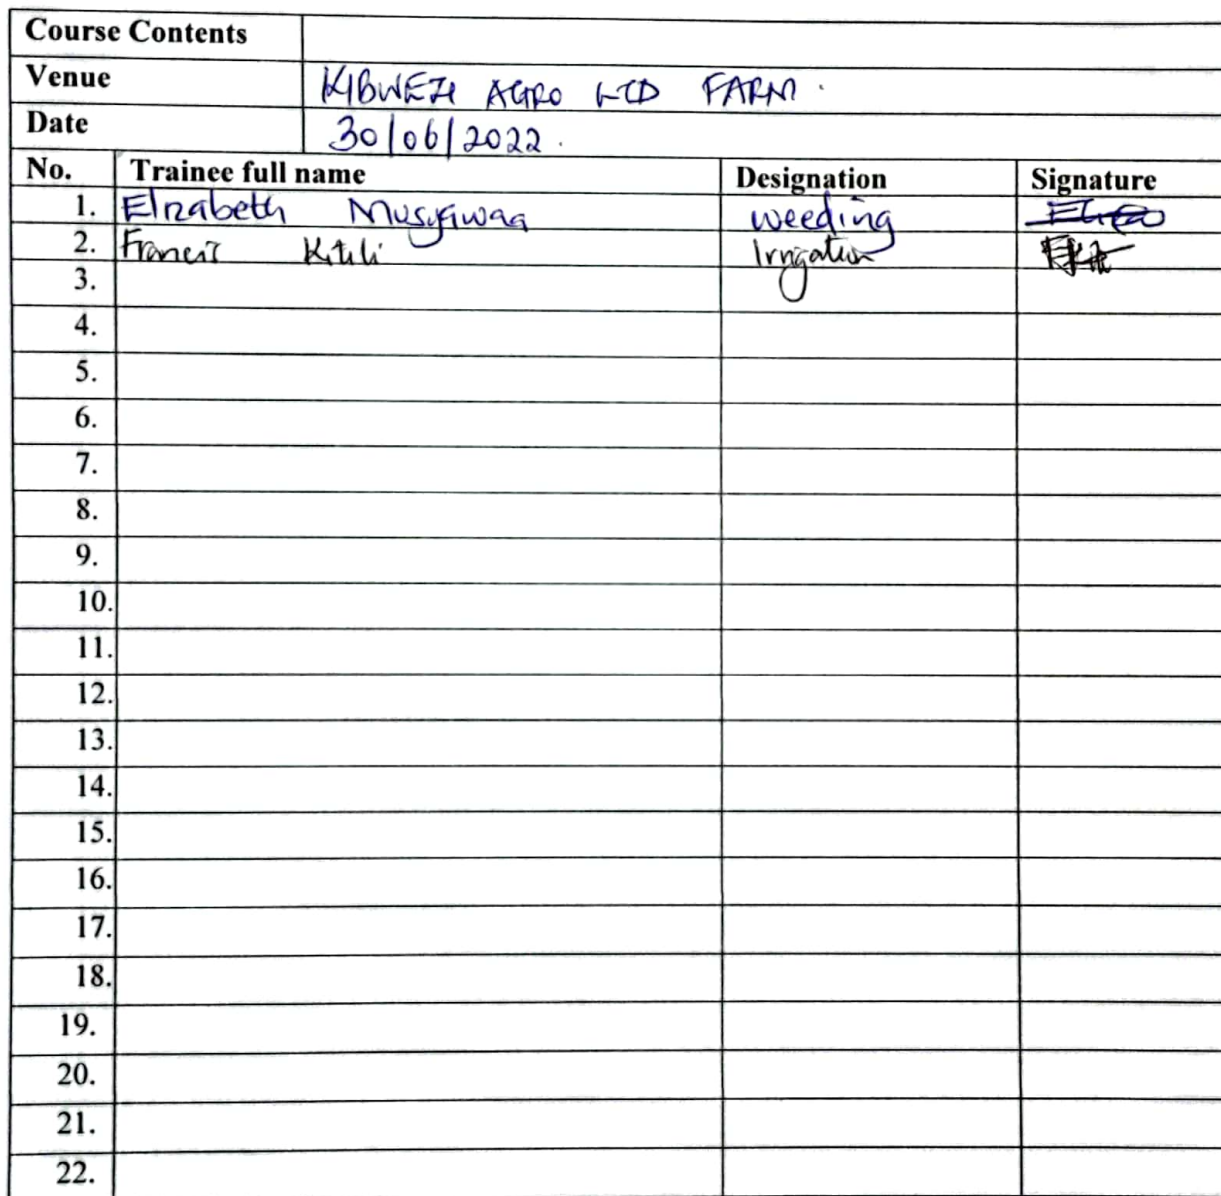 Course Contents
Venue KIBWEZI AGRO LTD FARM.
Date 30/06/2022.
No. Trainee full name Designation Signature
1. Elizabeth weeding
2. Francis Kitili Irrigation
3.
4.
5.
6.
7.
8.
9.
10.
11.
12.
13.
14.
15.
16.
17.
18.
19.
20.
21.
22.